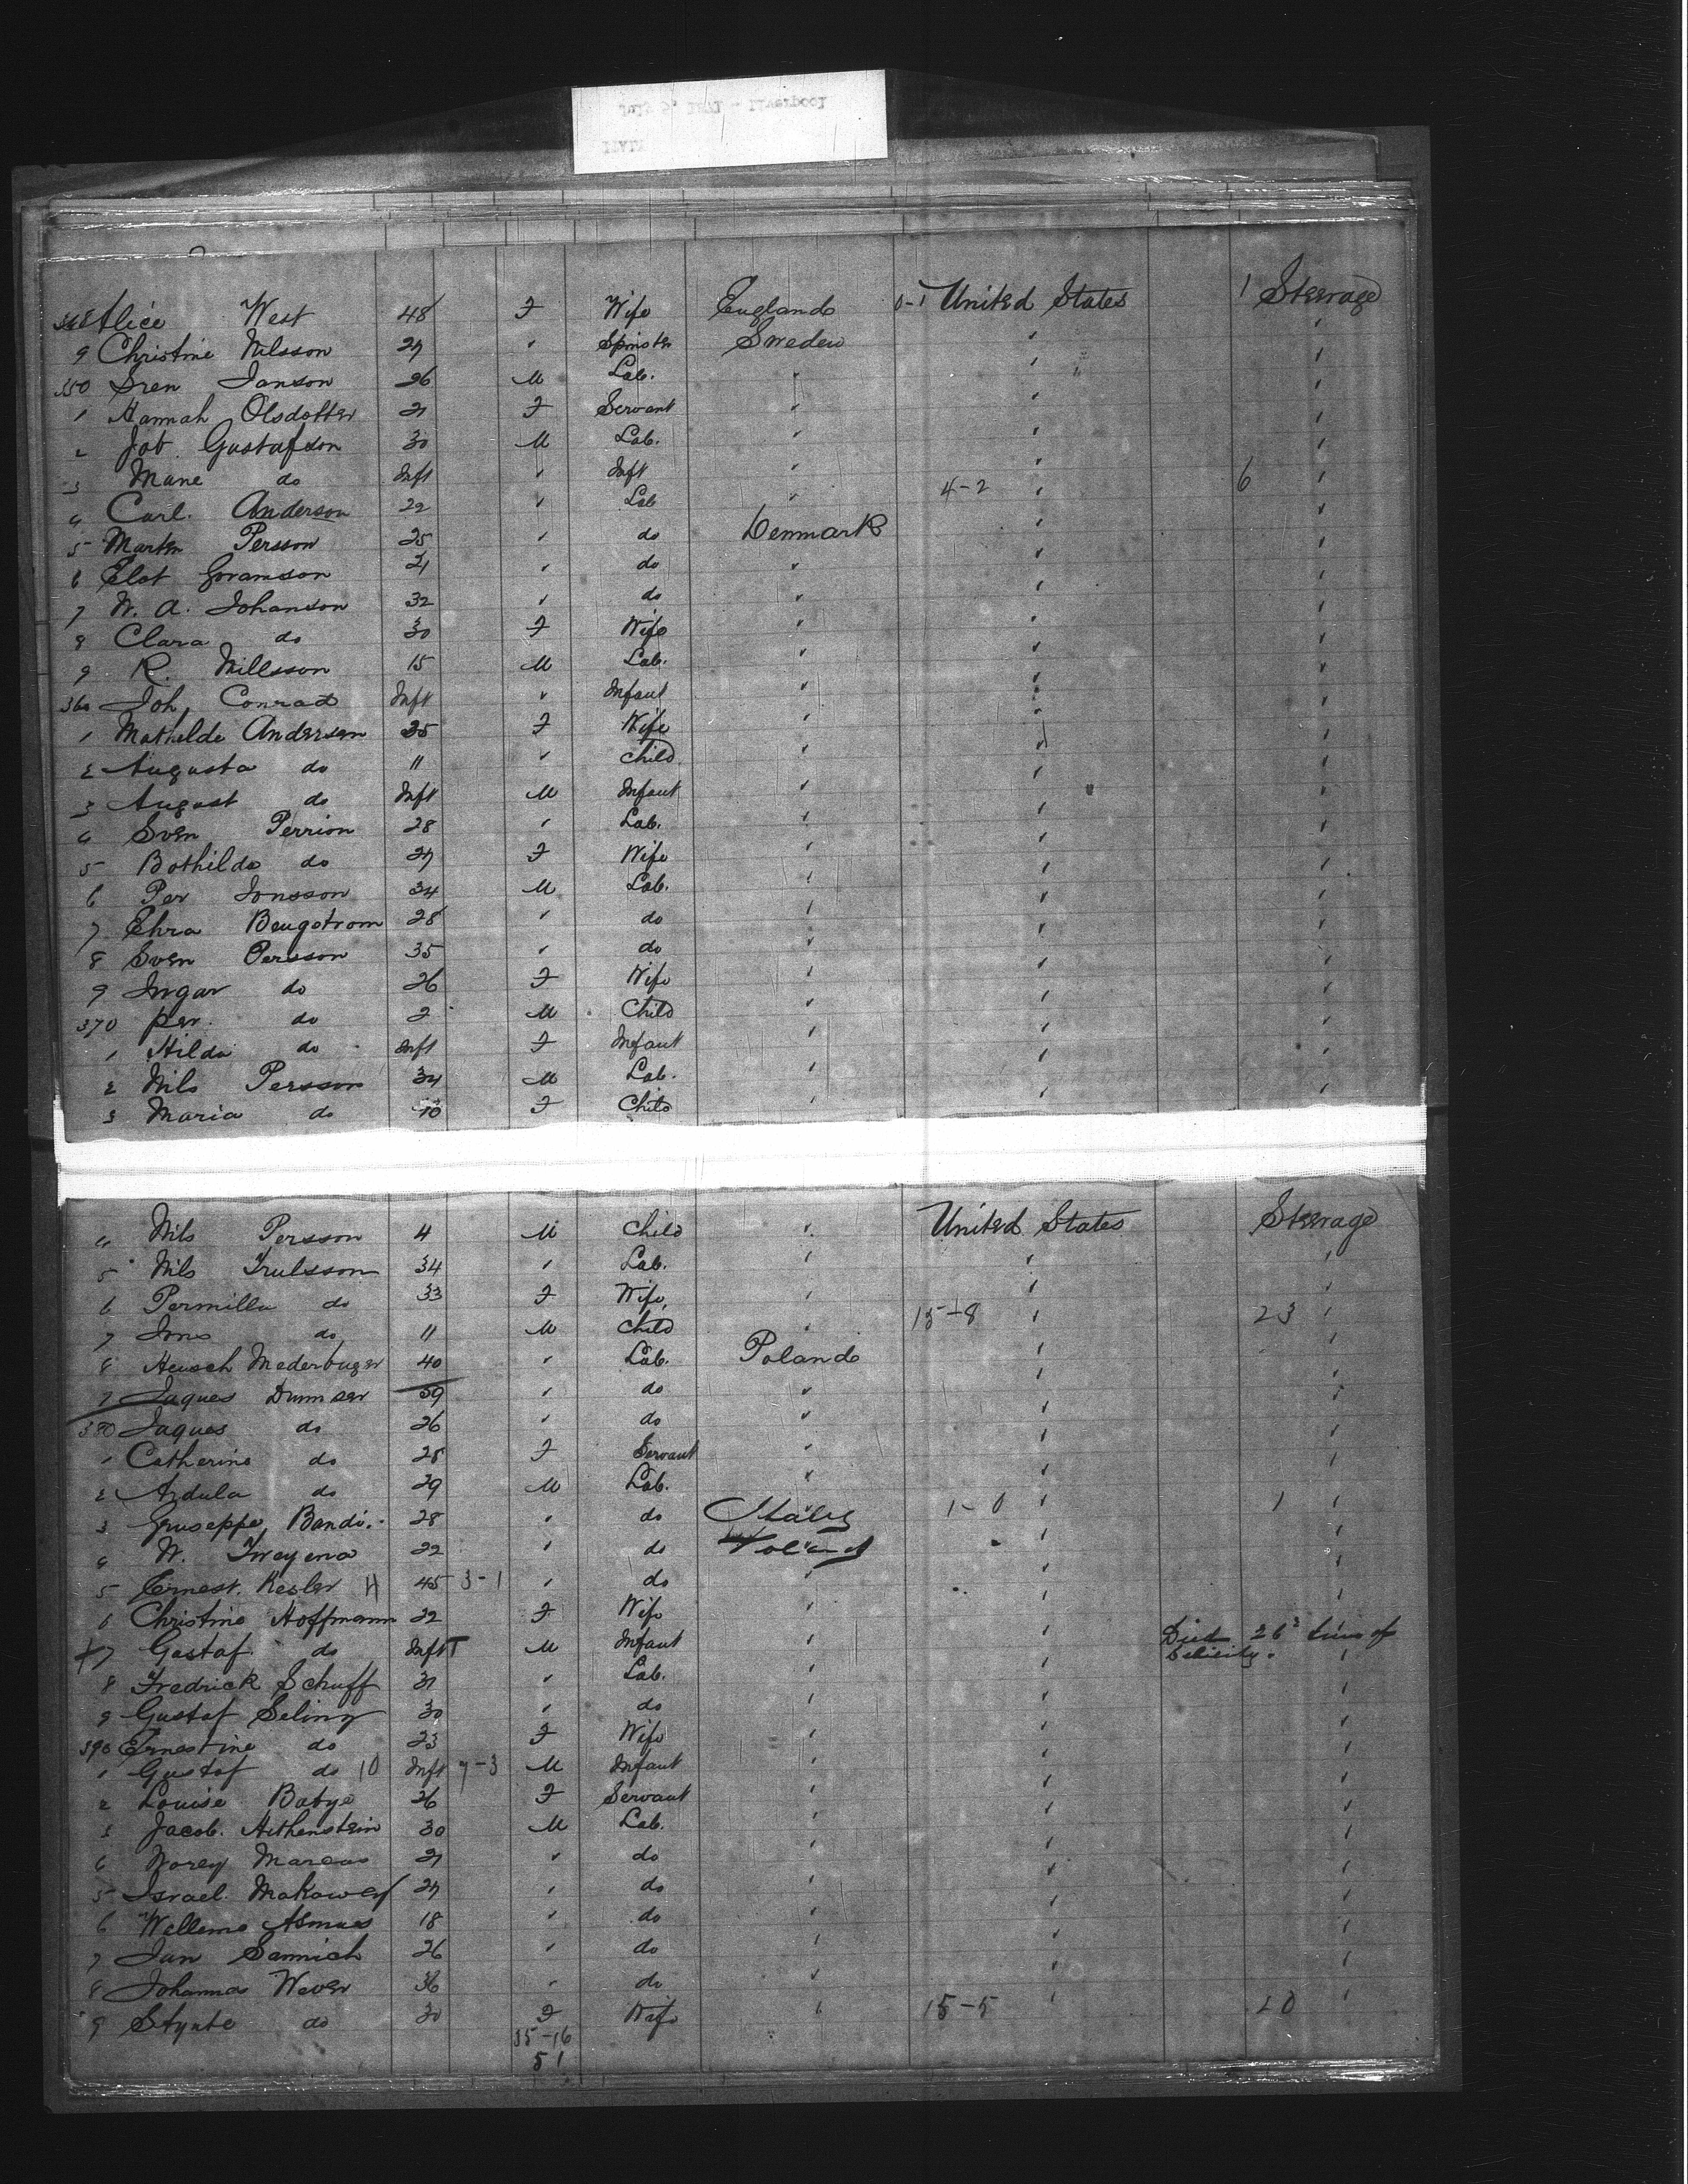 348 Alice West 48 F Wife England 0-1 United States 1 Steerage
9 Christine Nilsson 27 " Spinster Sweden " "
350 Sven Janson 26 M Lab. " " "
1 Hannah Olsdotter 21 F Servant " " "
2 Job. Gustafson 30 M Lab. " " "
3 Mane do Inft " Inft " " "
4 Carl. Anderson 22 " Lab " 4-2 " 6 "
5 Marten Persson 25 " do Denmark " "
6 Elof Goranson 21 " do " " "
7 W. A. Johanson 32 " do " " "
8 Clara do 30 F Wife " " "
9 R. Nillsson 15 M Lab. " " "
360 Joh. Conrad Inft " Infant " " "
1 Mathilde Andersen 35 F Wife " " "
2 Augusta do 11 " Child " " "
3 August do Inft M Infant " " "
4 Sven Perrion 28 " Lab. " " "
5 Bothilda do 27 F Wife " " "
6 Per Jonsson 34 M Lab. " " "
7 Ehra Bengstrom 28 " do " " "
8 Sven Persson 35 " do " " "
9 Ingar do 26 F Wife " " "
370 Per. do 2 M Child " " "
1 Hilda do Inft F Infant " " "
2 Nils Persson 34 M Lab. " " "
3 Maria do 10 F Child " " "
4 Nils Persson 4 M Child " United States Steerage
5 Nils Trulsson 34 " Lab. " " "
6 Permilla do 33 F Wife " " "
7 Jons do 11 M Child " 15-8 " 23 "
8 Hersch Mederbuger 40 " Lab. Poland " "
9 Jaques Dumser 39 " do " " "
380 Jaques do 26 " do " " "
1 Catherine do 28 F Servant " " "
2 Ardula do 29 M Lab. " " "
3 Gruseppe Bandi. 28 " do Italy 1-0 " 1 "
4 W. Treyena 22 " do Poland " "
5 Ernest. Kesler H 45 3-1 " do " " "
6 Christine Hoffmann 22 F Wife " " "
7 Gustaf do Inft M Infant " " Died 26th
Debility. "
8 Fredrick Schuff 31 " Lab. " " "
9 Gustaf Seling 30 " do " " "
390 Ernestine do 23 F Wife " " "
1 Gustaf do 10 Inft 7-3 M Infant " " "
2 Louise Batye 26 F Servant " " "
3 Jacob. Hithenstein 30 M Lab. " " "
4 Norey Marcus 21 " do " " "
5 Israel. Makower 27 " do " " "
6 Wellema Asmus 18 " do " " "
7 Jan Sannich 26 " do " " "
8 Johanna Wever 36 " do " " "
9 Stynte do 30 F Wife " 15-5 " 20 "
35-16
51